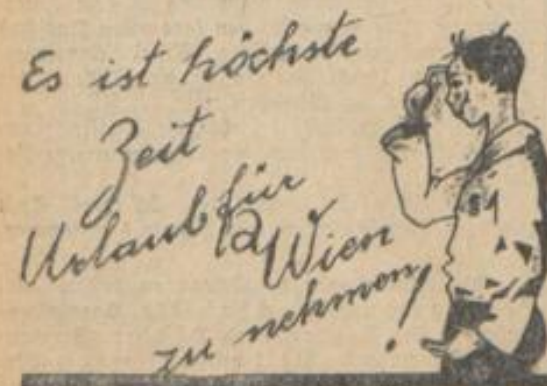 Es ist höchste
Zeit
Urlaub für
Wien
zu nehmen!